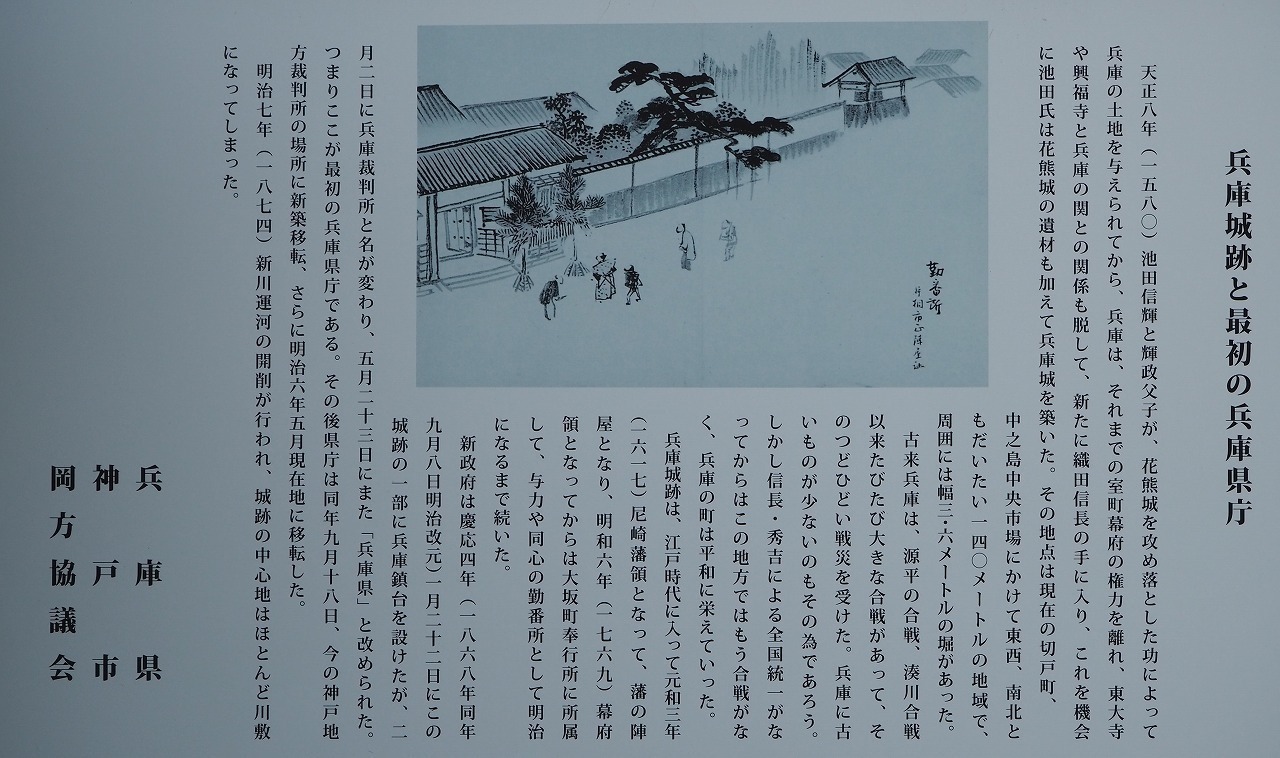 兵庫城跡と最初の兵庫県庁
天正八年（一五八〇）池田信輝と輝政父子が、花熊城を攻め落とした功によって
兵庫の土地を与えられてから、兵庫は、それまでの室町幕府の権力を離れ、東大寺
や興福寺と兵庫の関との関係も脱して、新たに織田信長の手に入り、これを機会
に池田氏は花熊城の遺材も加えて兵庫城を築いた。その地点は現在の切戸町、
中之島中央市場にかけて東西、南北と
もだいたい一四〇メートルの地域で、
周囲には幅三・六メートルの堀があった。
古来兵庫は、源平の合戦、湊川合戦
以来たびたび大きな合戦があって、そ
のつどひどい戦災を受けた。兵庫に古
いものが少ないのもその為であろう。
しかし信長・秀吉による全国統一がな
ってからはこの地方ではもう合戦がな
く、兵庫の町は平和に栄えていった。
兵庫城跡は、江戸時代に入って元和三年
（一六一七）尼崎藩領となって、藩の陣
屋となり、明和六年（一七六九）幕府
領となってからは大坂町奉行所に所属
して、与力や同心の勤番所として明治
になるまで続いた。
新政府は慶応四年（一八六八年同年
九月八日明治改元）一月二十二日にこの
城跡の一部に兵庫鎮台を設けたが、二
月二日に兵庫裁判所と名が変わり、五月二十三日にまた「兵庫県」と改められた。
つまりここが最初の兵庫県庁である。その後県庁は同年九月十八日、今の神戸地
方裁判所の場所に新築移転、さらに明治六年五月現在地に移転した。
明治七年（一八七四）新川運河の開削が行われ、城跡の中心地はほとんど川敷
になってしまった。
勤番所
兵庫県
神戸市
岡方協議会